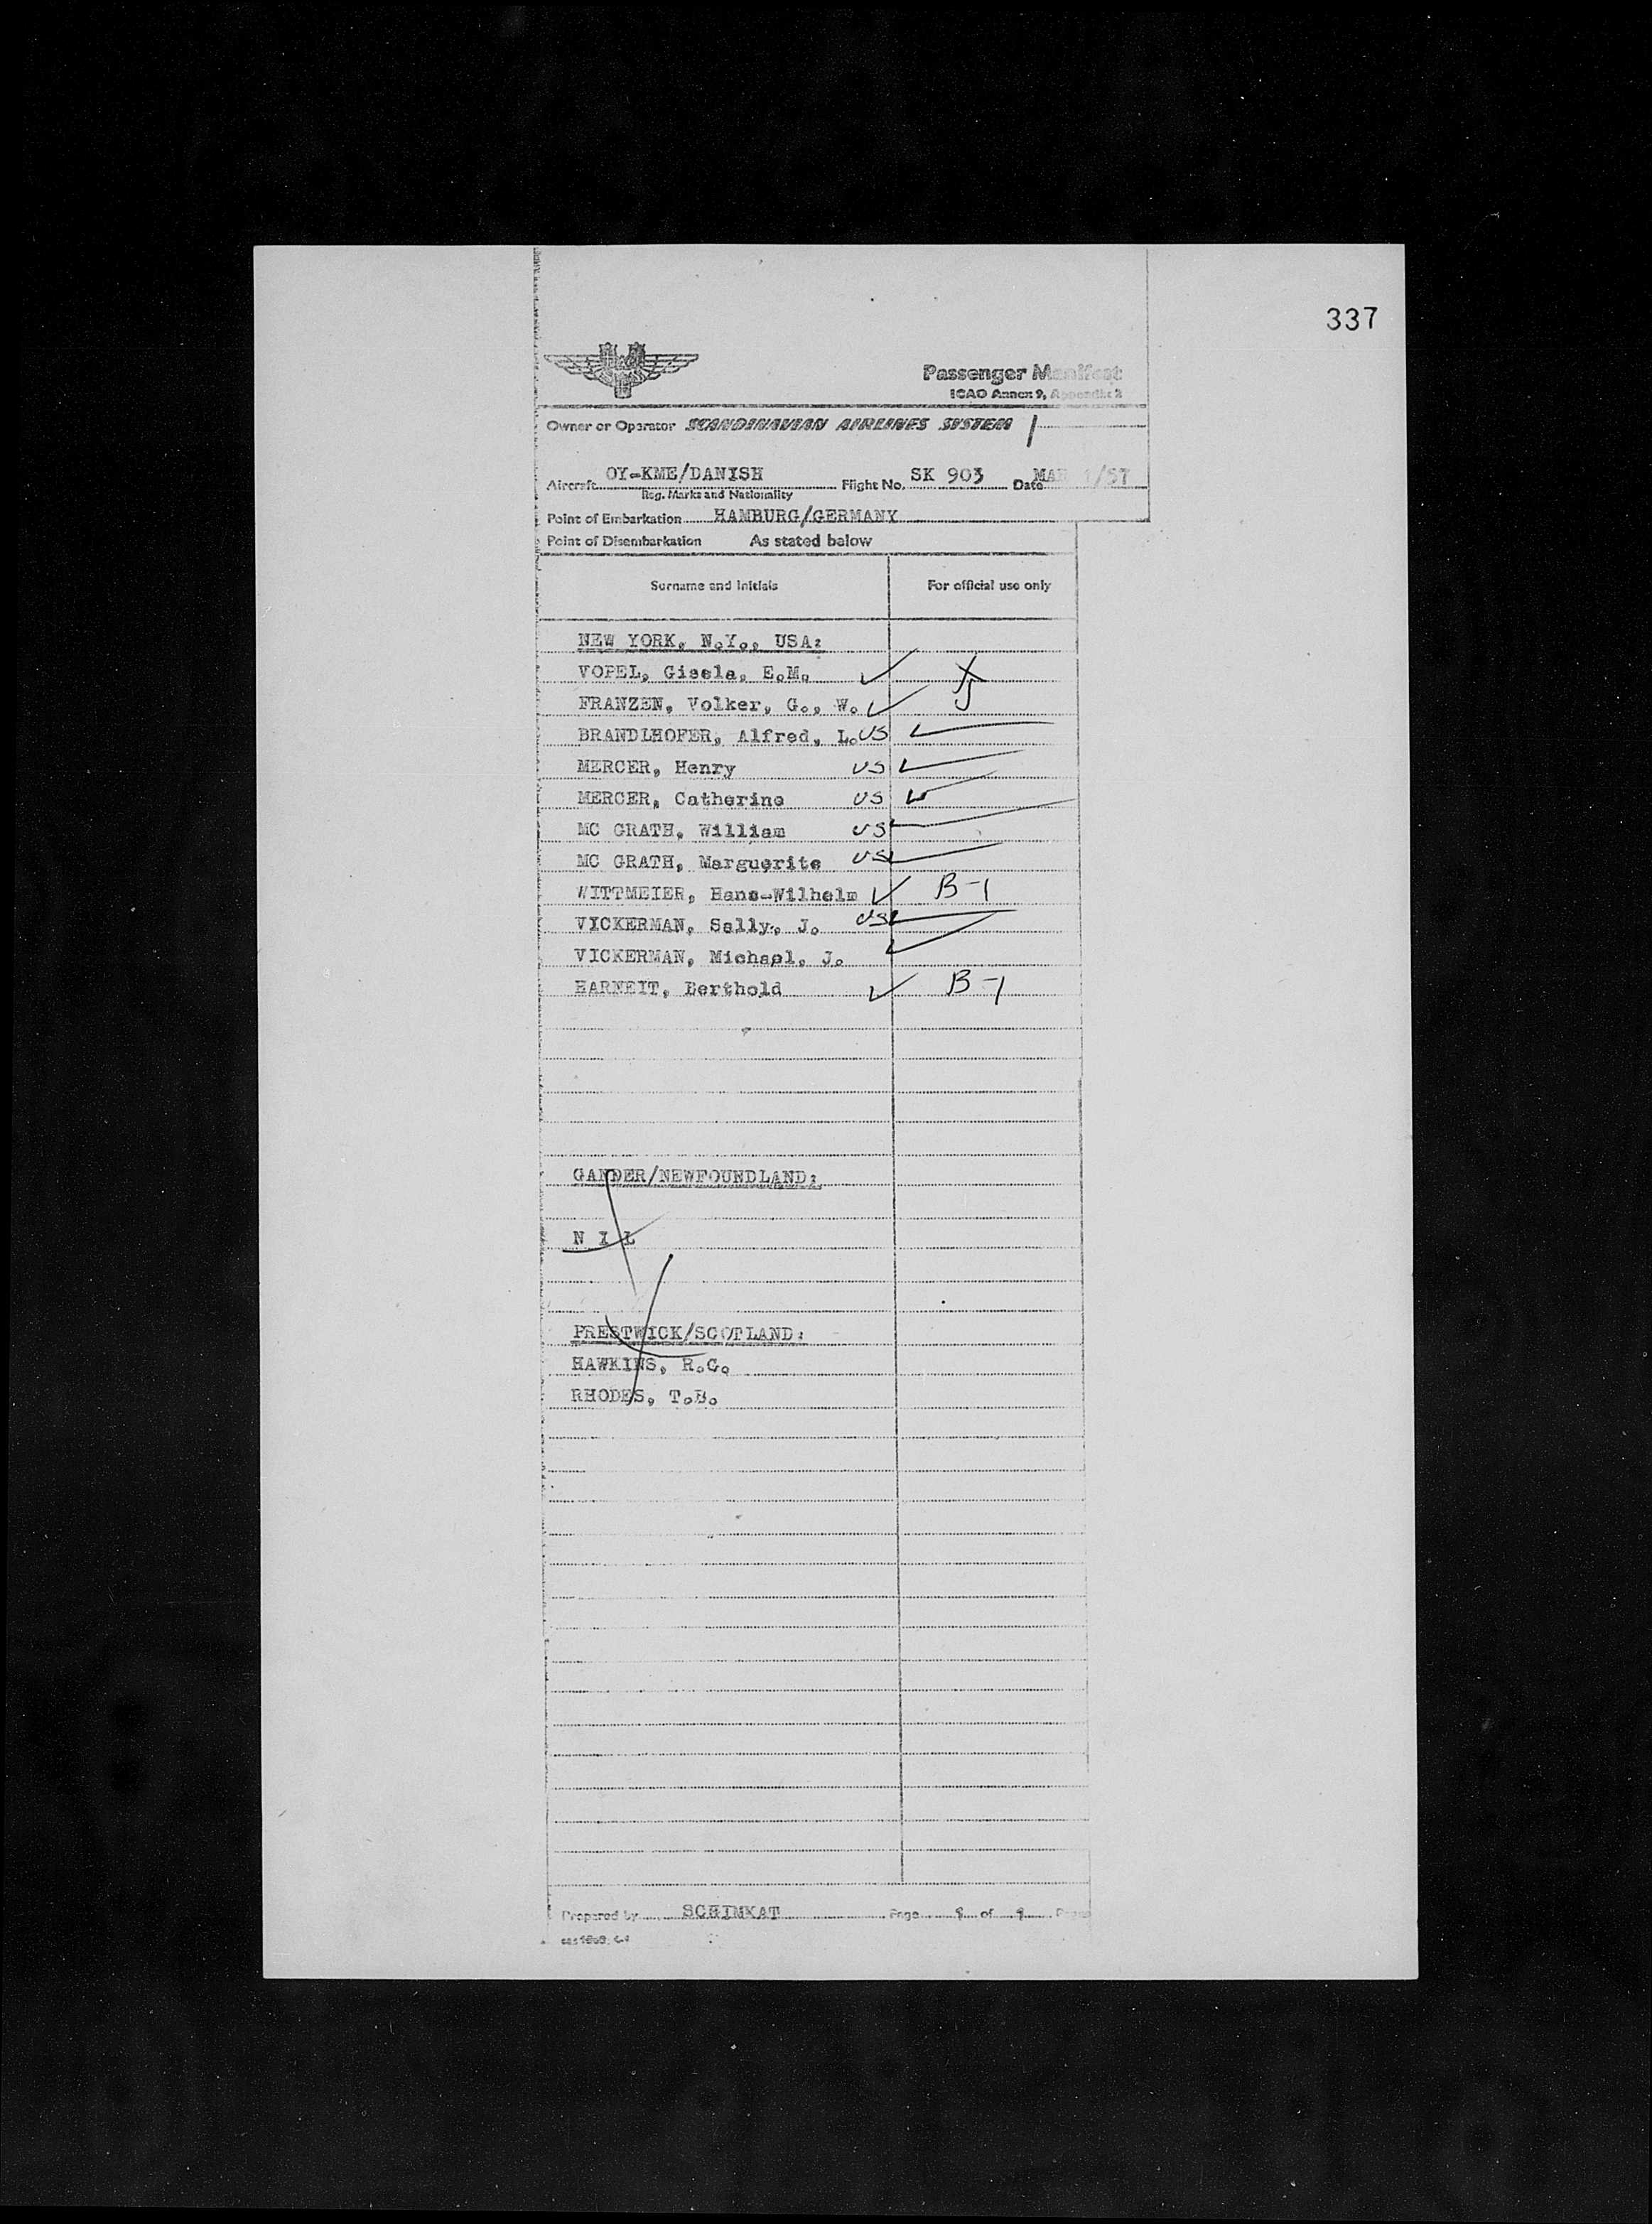 337
Passenger Manifest
ICAO Annex 9, Appendix 2
Owner or Operator SCANDINAVIAN AIRLINES SYSTEM
Aircraft OY-KME/DANISH Flight No. SK 903 Date MAR 1/57
Reg. Marks and Nationality
Point of Embarkation HAMBURG/GERMANY
Point of Disembarkation As stated below
Surname and Initials For official use only
NEW YORK, N.Y., USA:
VOPEL, Gisela, E.M.
FRANZEN, Volker, G., W.
BRANDLHOFER, Alfred, L. US
MERCER, Henry US
MERCER, Catherine US
MC GRATH, William US
MC GRATH, Marguerite US
WITTMEIER, Hans-Wilhelm B-1
VICKERMAN, Sally, J. US
VICKERMAN, Michael, J.
HARNEIT, Berthold B-1
GANDER/NEWFOUNDLAND:
N I L
PRESTWICK/SCOTLAND:
HAWKINS, R.G.
RHODES, T.B.
Prepared by SCHIMKAT Page of Pages